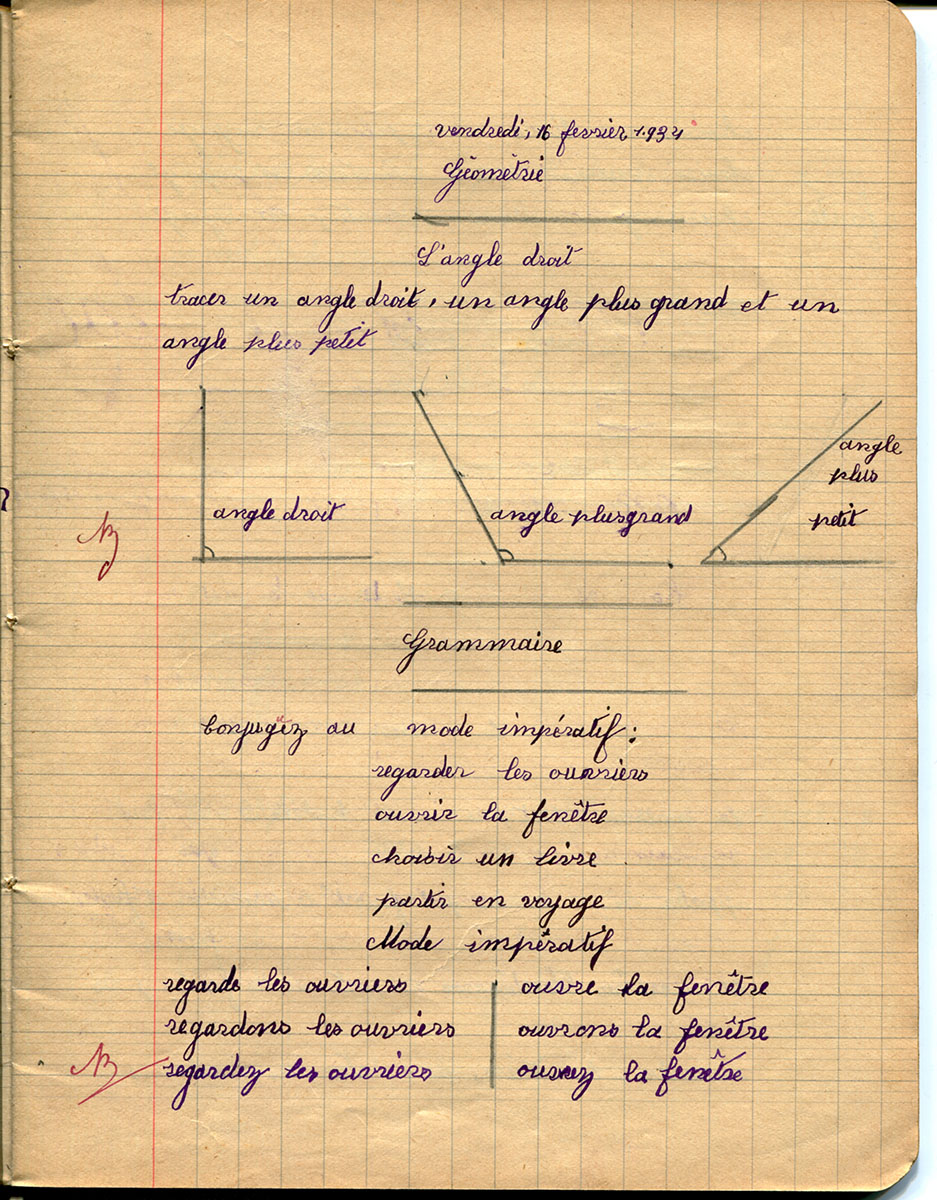 vendredi, 16 fevrier 1934
Géométrie
L'angle droit
tracer un angle droit, un angle plus grand et un
angle plus petit
angle droit
angle plus grand
angle
plus
petit
Grammaire
Conjuguez au mode impératif :
regarder les ouvriers
ouvrir la fenêtre
choisir un livre
partir en voyage
Mode impératif
regarde les ouvriers
regardons les ouvriers
regardez les ouvriers
ouvre la fenêtre
ouvrons la fenêtre
ouvrez la fenêtre